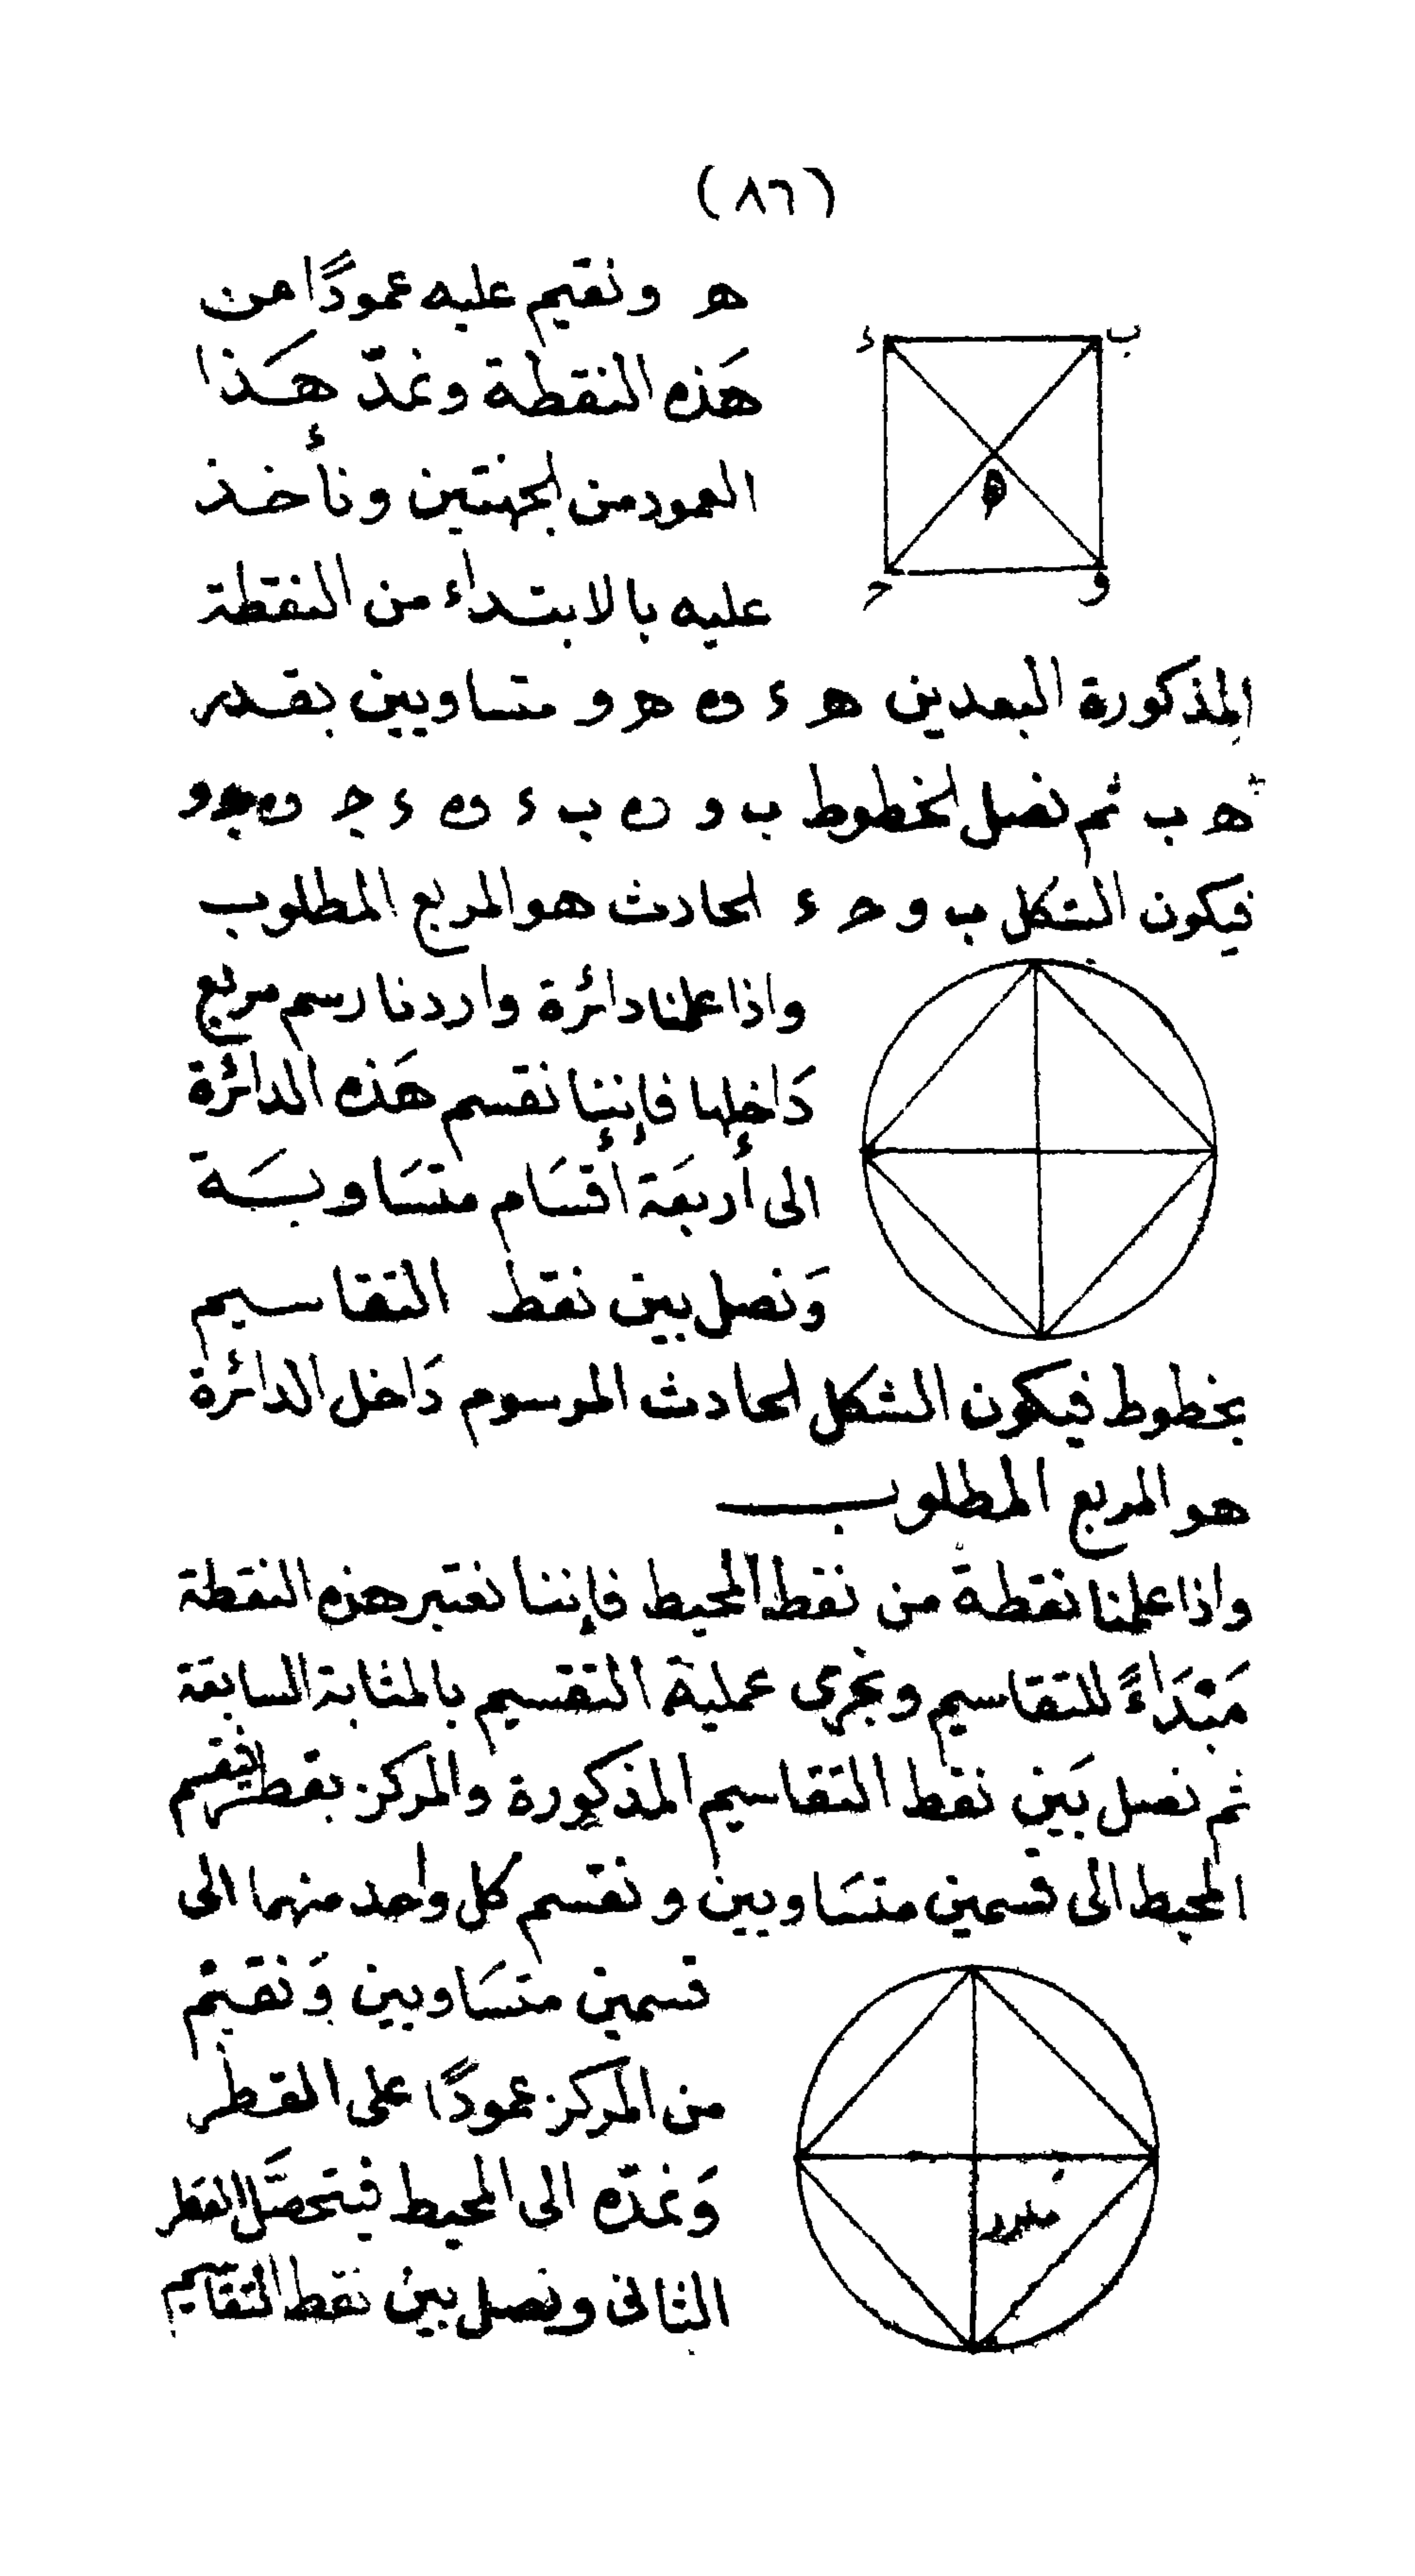 (٨٦)
ه ونقيم عليه عمودًا من
هَذه النقطة ونمدّ هَذا
العمود من الجهتين ونأخذ
عليه بالابتداء من النقطة
المذكورة البعدين ه ء و ه و متساويين بقدر
ه ب ثم نصل الخطوط ب و و ب ء و ء ج و ج و
فيكون الشكل ب و ح ء الحادث هو المربع المطلوب
واذا علمنا دائرة واردنا رسم مربع
دَاخلها فإننا نقسم هَذه الدائرة
الى أربعَة أقسَام متسَاويَة
وَنصل بين نقط التقاسيم
بخطوط فيكون الشكل الحادث المرسوم دَاخل الدائرة
هو المربع المطلوب
واذا علمنا نقطة من نقط المحيط فإننا نعتبر هذه النقطة
مَبْدَاءً للتقاسيم ونجرى عملية التقسيم بالمثابة السابقة
ثم نصل بَين نقط التقاسيم المذكورة والمركز بقطر فينقسم
المحيط الى قسمين متسَاويين ونقسم كل واحد منهما الى
قسمين متسَاويين وَنقيم
من المركز عمودًا على القطر
وَنمدّه الى المحيط فيتحصَّل القطر
الثانى ونصل بين نقط التقاسيم
ب
ء
ه
ح
و